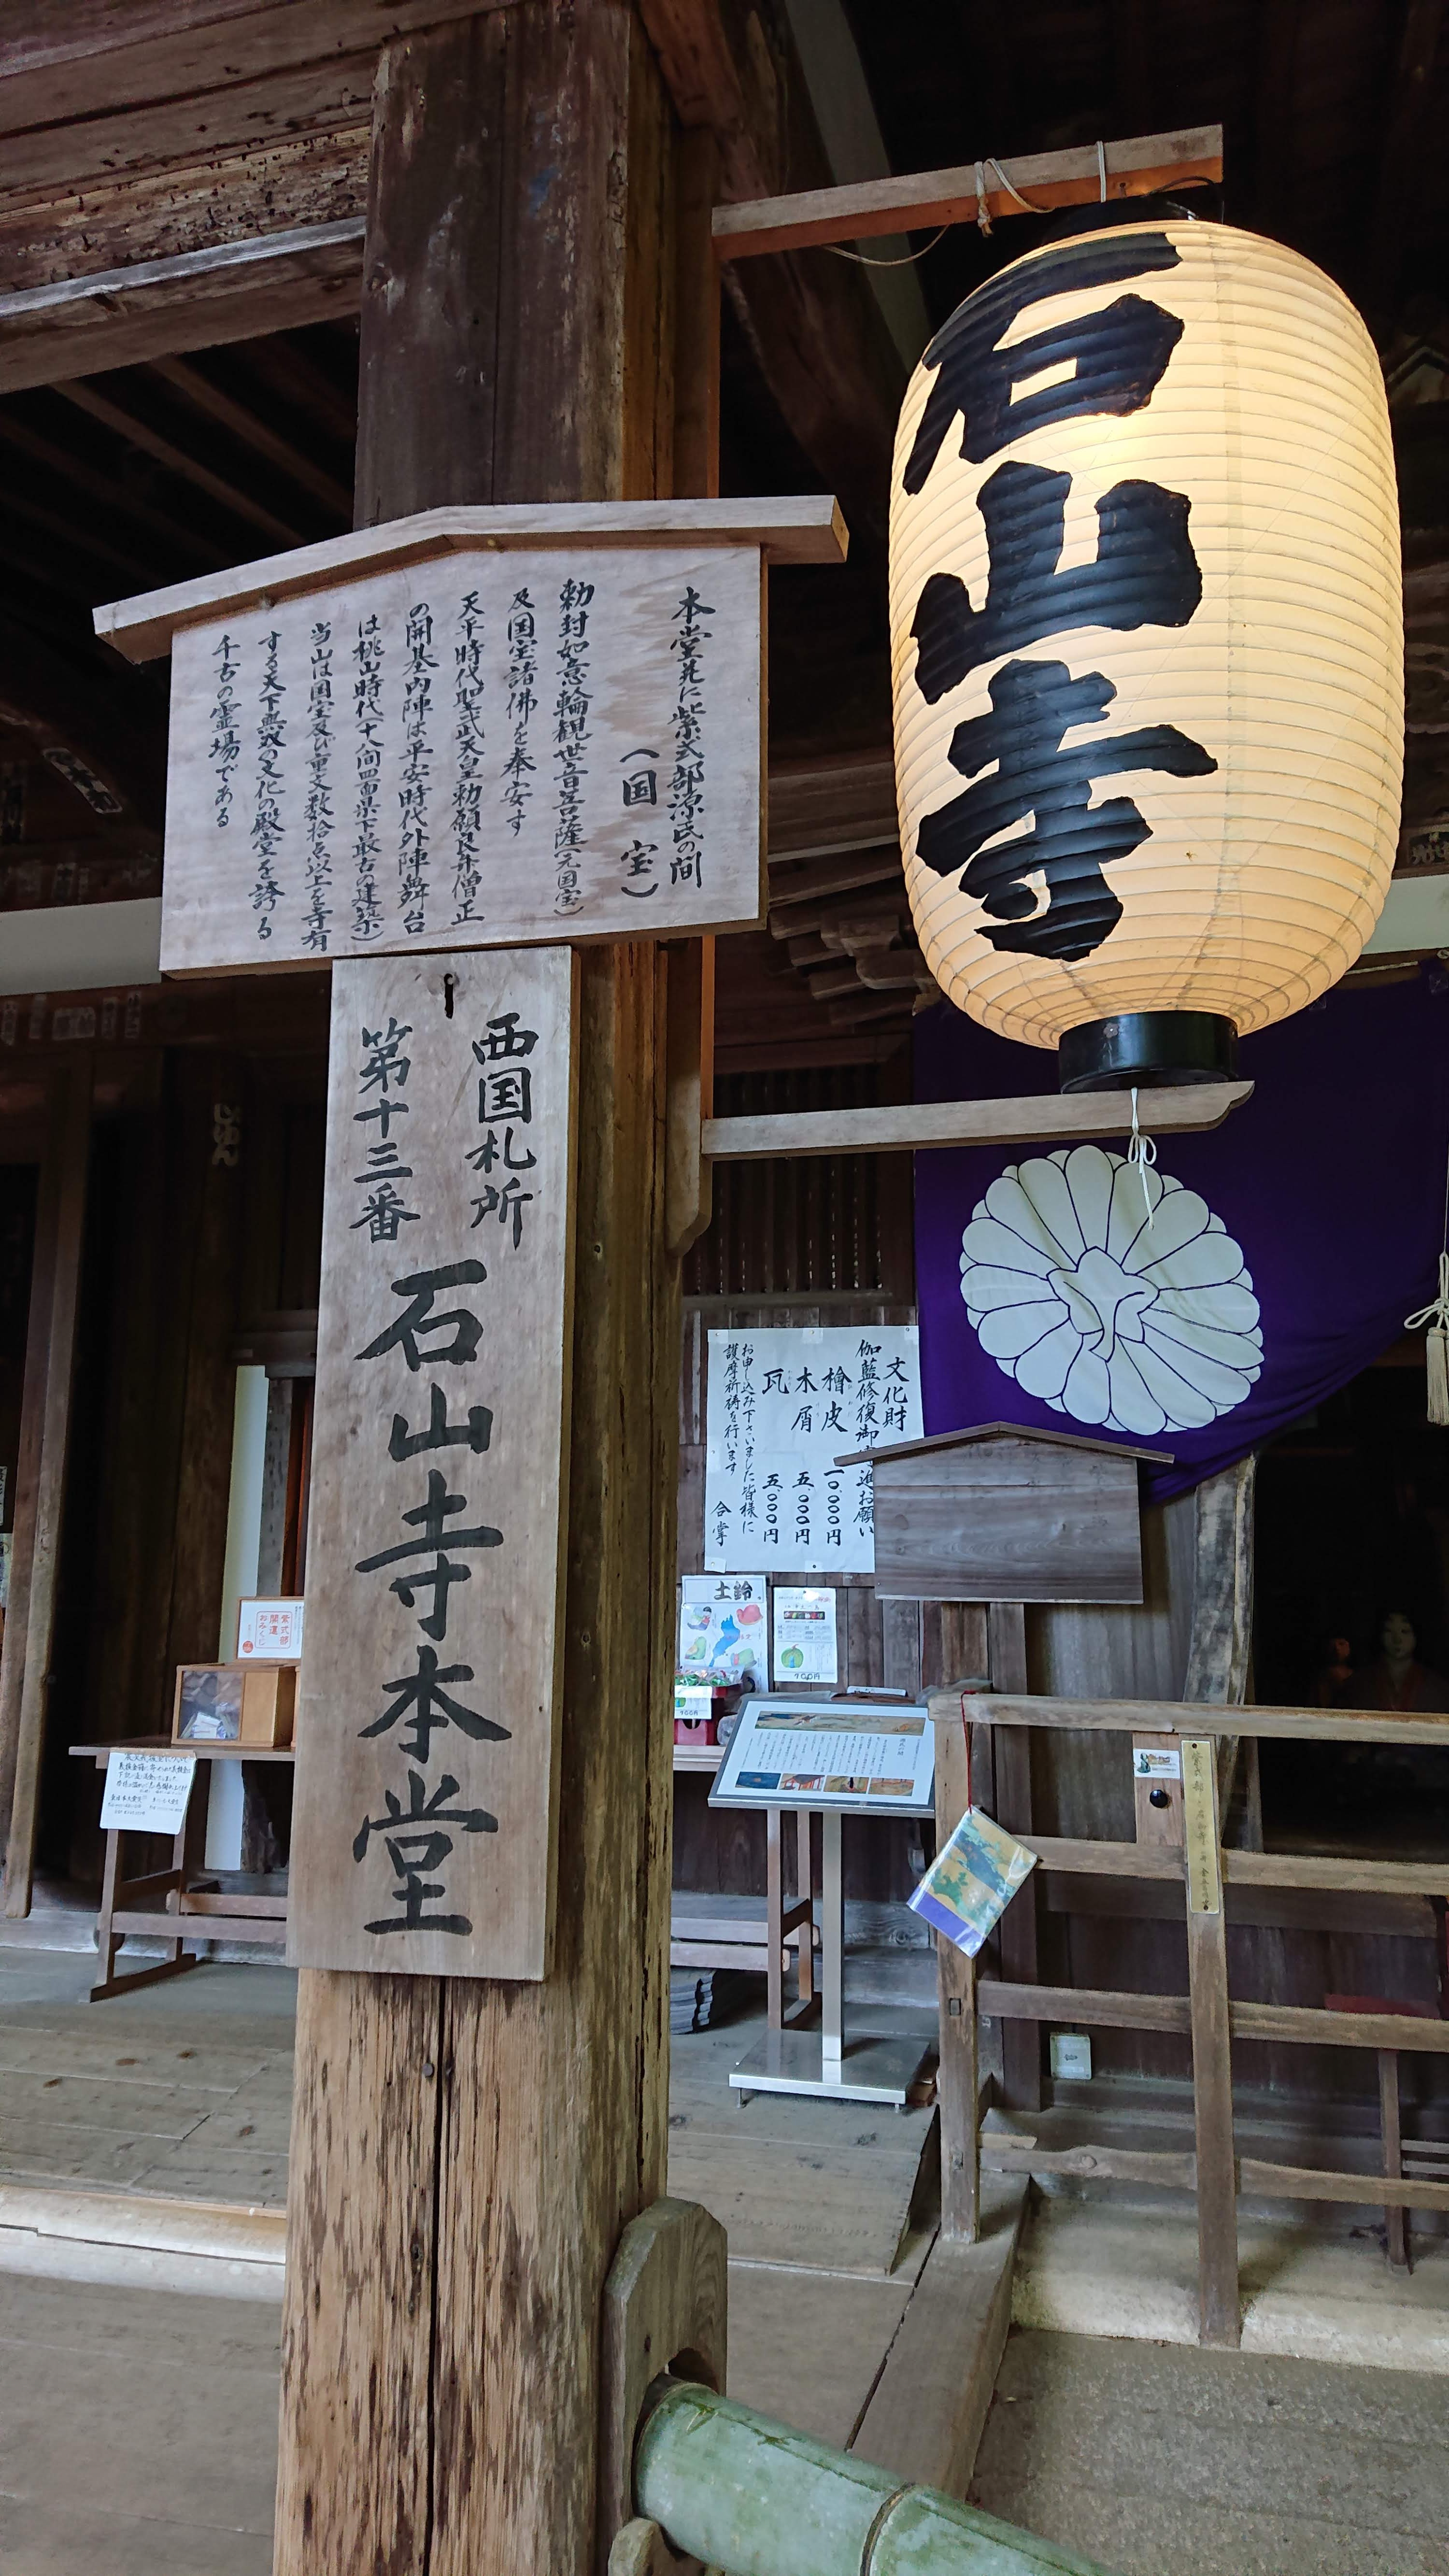 石山寺
本堂並に紫式部源氏の間
(国宝)
勅封如意輪観世音菩薩(元国宝)
及国宝諸佛を奉安す
天平時代聖武天皇勅願良弁僧正
の開基内陣は平安時代外陣舞台
は桃山時代(十八間四面県下最古の建築)
当山は国宝及び重文数拾点以上を寺有
する天下無双の文化の殿堂を誇る
千古の霊場である
西国札所
第十三番
石山寺本堂
文化財
伽藍修復御 進お願い
檜皮 一〇.〇〇〇円
木屑 五.〇〇〇円
瓦 五.〇〇〇円
お申し込み下さいました皆様に
護摩祈祷を行います
合掌
土鈴
900円
紫式部
開運
おみくじ